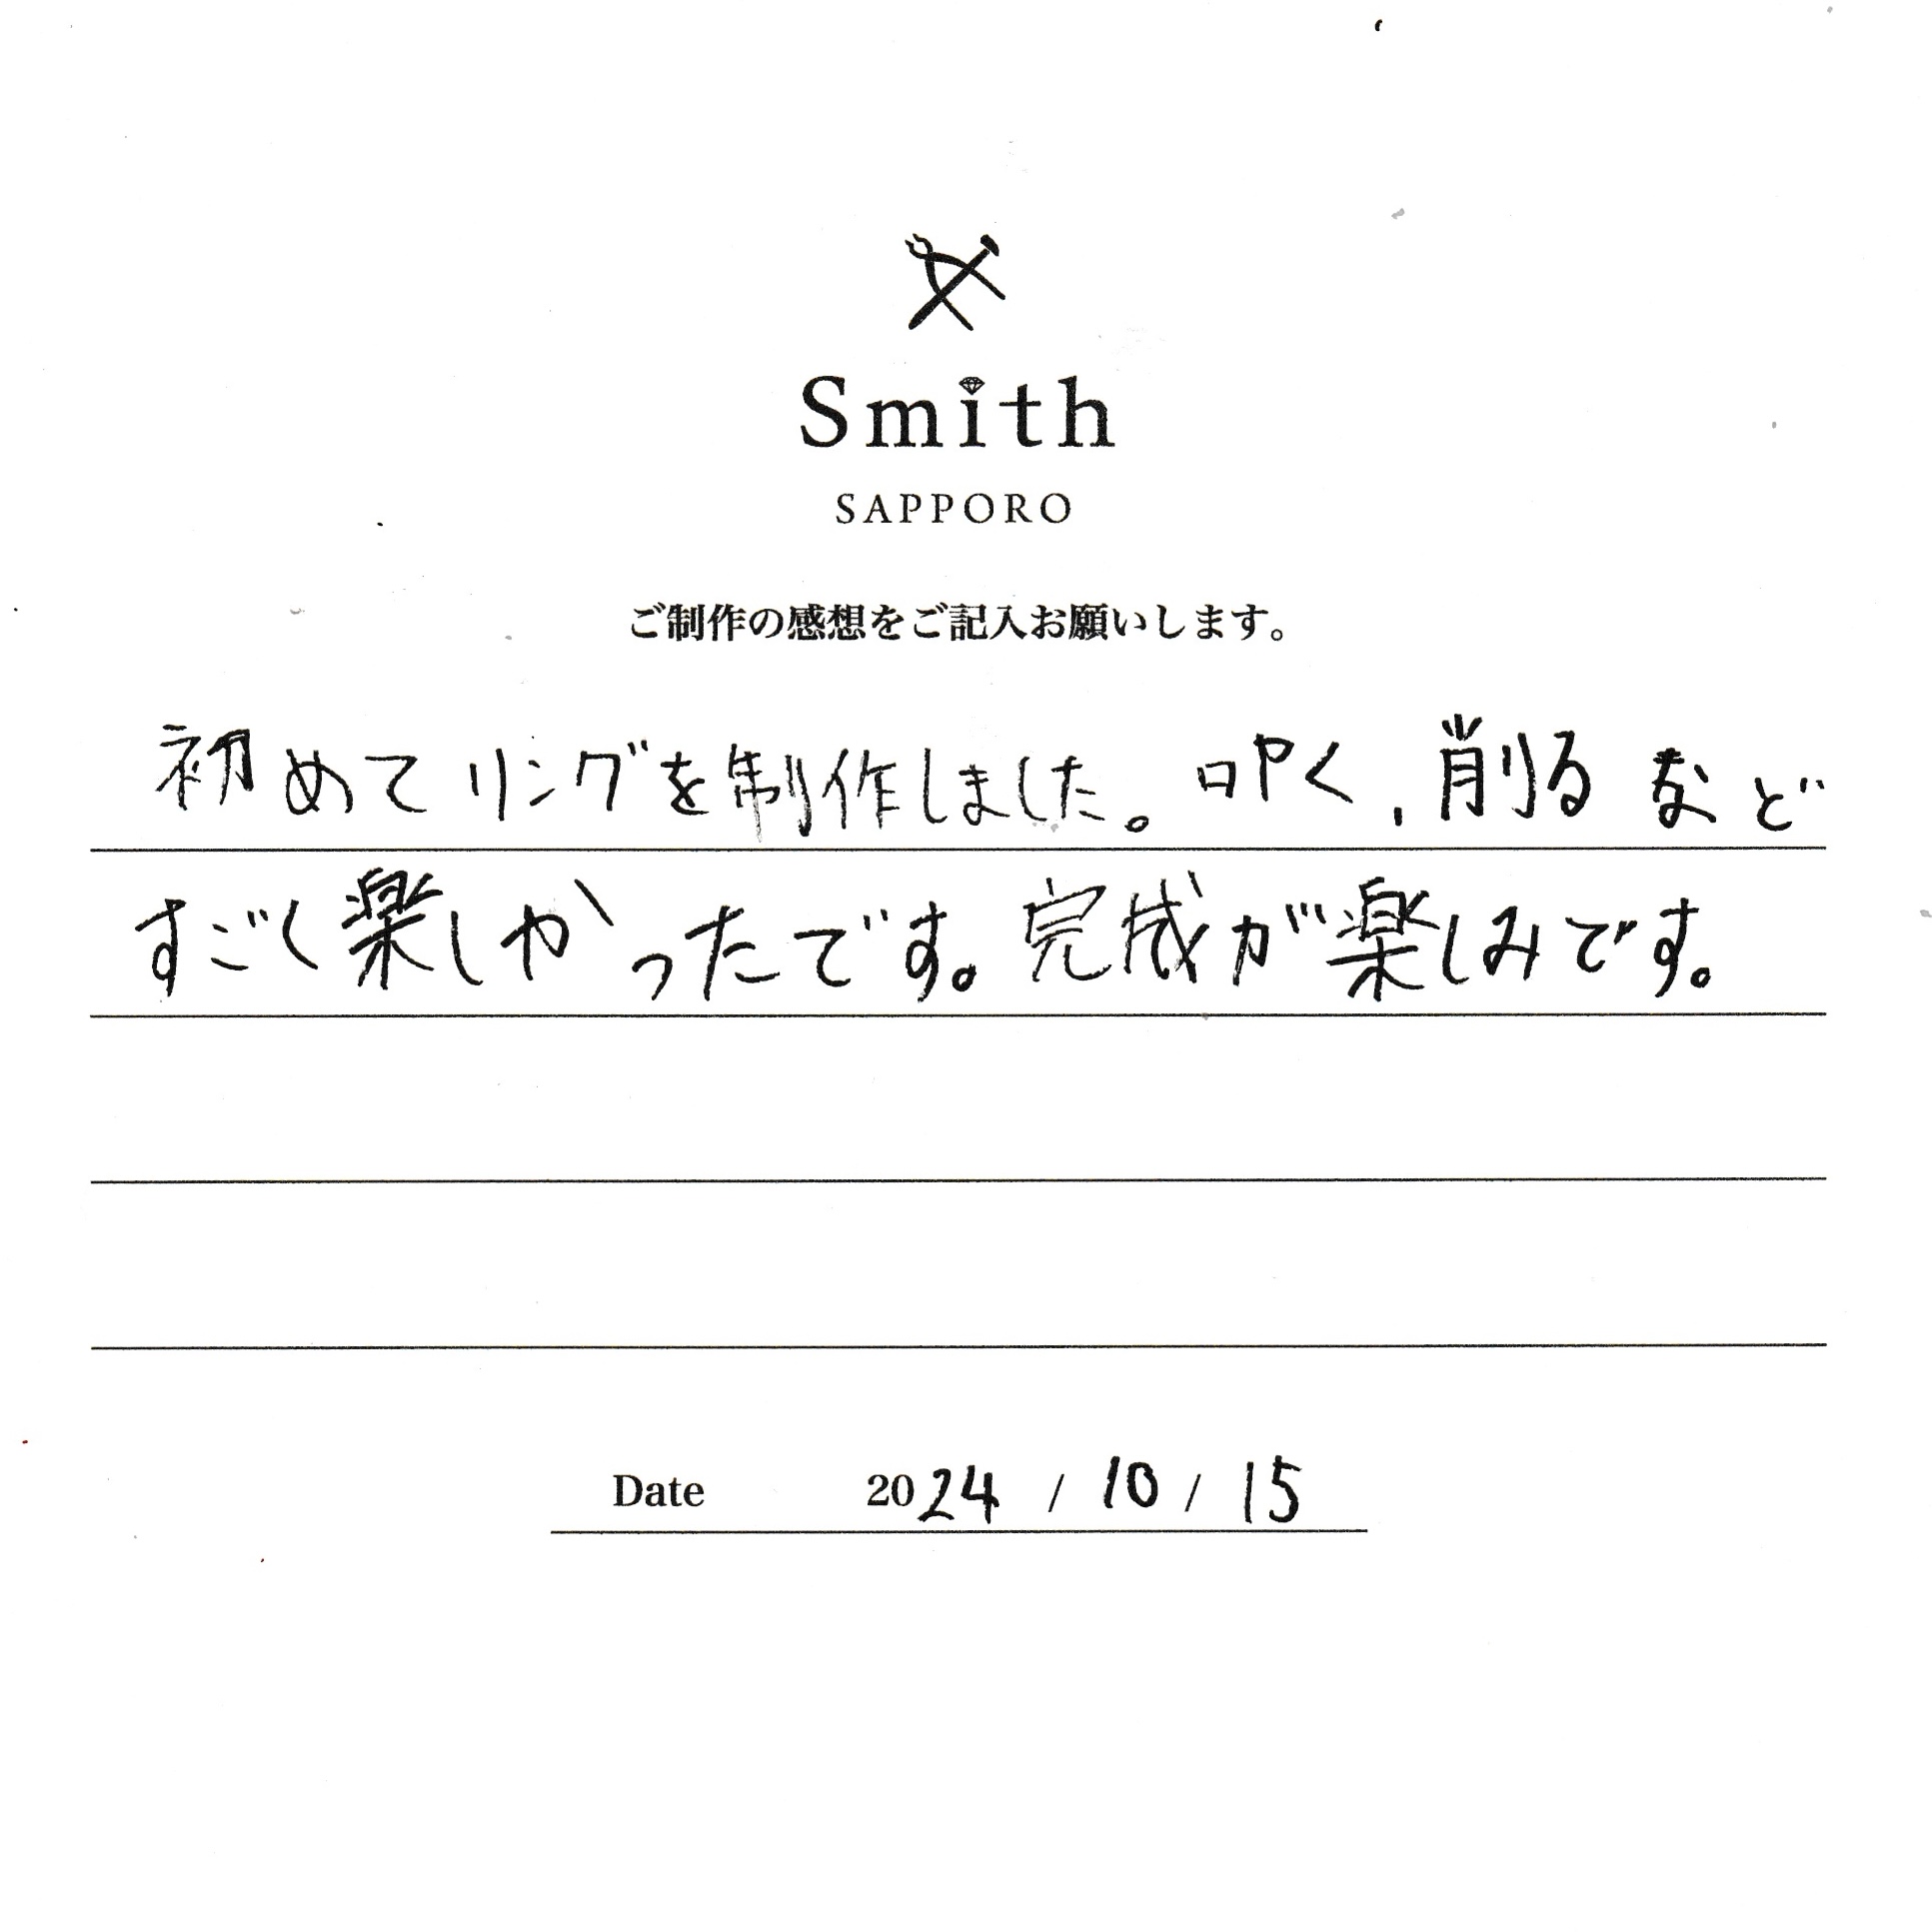 Smith
SAPPORO
ご制作の感想をご記入お願いします。
初めてリングを制作しました。叩く、削るなど
すごく楽しかったです。完成が楽しみです。
Date 2024 / 10 / 15